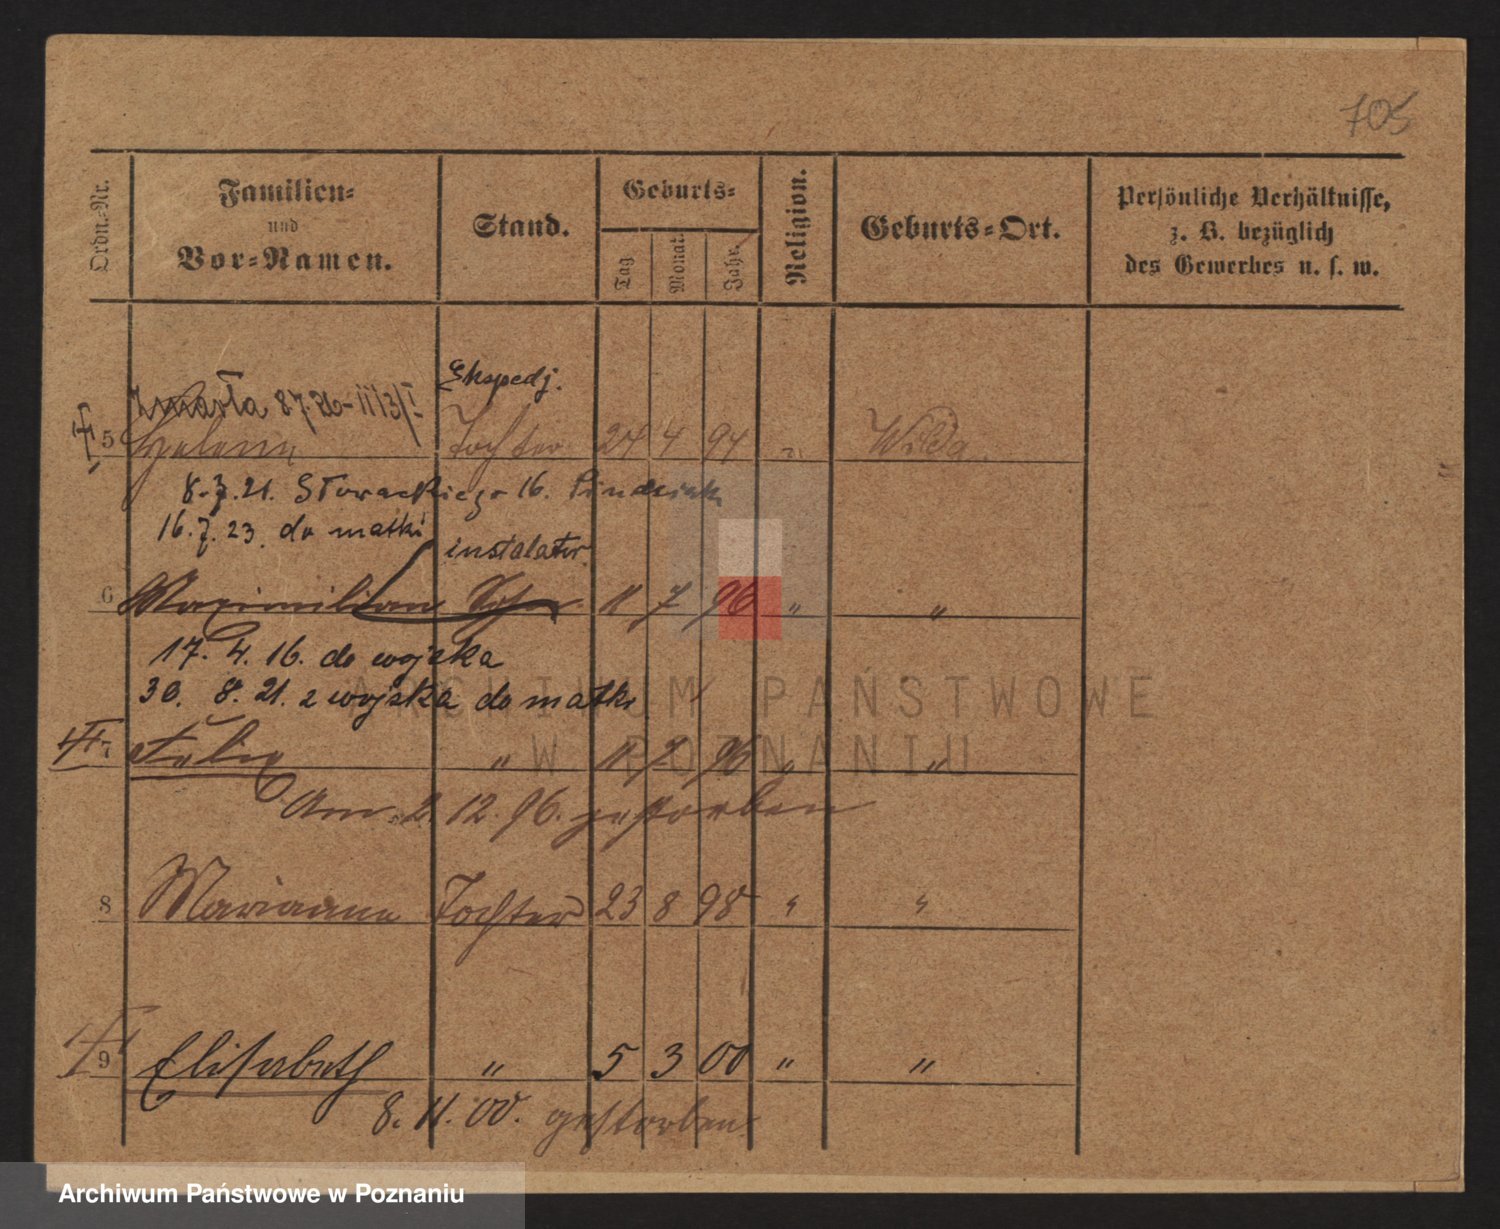 705
Ordn.-Nr.
Familien-
und
Vor-Namen.
Stand.
Geburts-
Tag
Monat
Jahr.
Religion.
Geburts-Ort.
Persönliche Verhältnisse,
z. B. bezüglich
des Gewerbes u. s. w.
Ekspedj.
Zmarła 8.7.26 -
5 Helene Tochter 24 4 94 Wilda
8.7.21. Słowackiego 16.
16.7.23. do matki
instalator
6 Maximilian Sohn 11 7 96 " "
17. 4. 16. do wojska
30. 8. 21. z wojska do matki
ARCHIWUM PAŃSTWOWE
W POZNANIU
7 " 11 7 96 " "
Am 2. 12. 96. gestorben
8 Marianna Tochter 23 8 98 " "
9 Elisabeth " 5 3 00 " "
8. 11. 00. gestorben
Archiwum Państwowe w Poznaniu